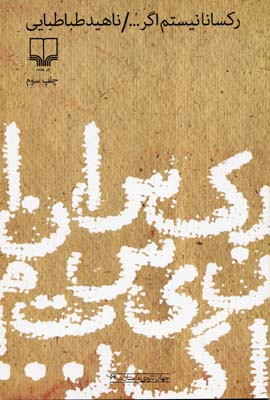 رکسانا نیستم اگر.../ناهید طباطبایی
نشر چشمه
چاپ سوم
رک سانا
نی س ت م
اگر...